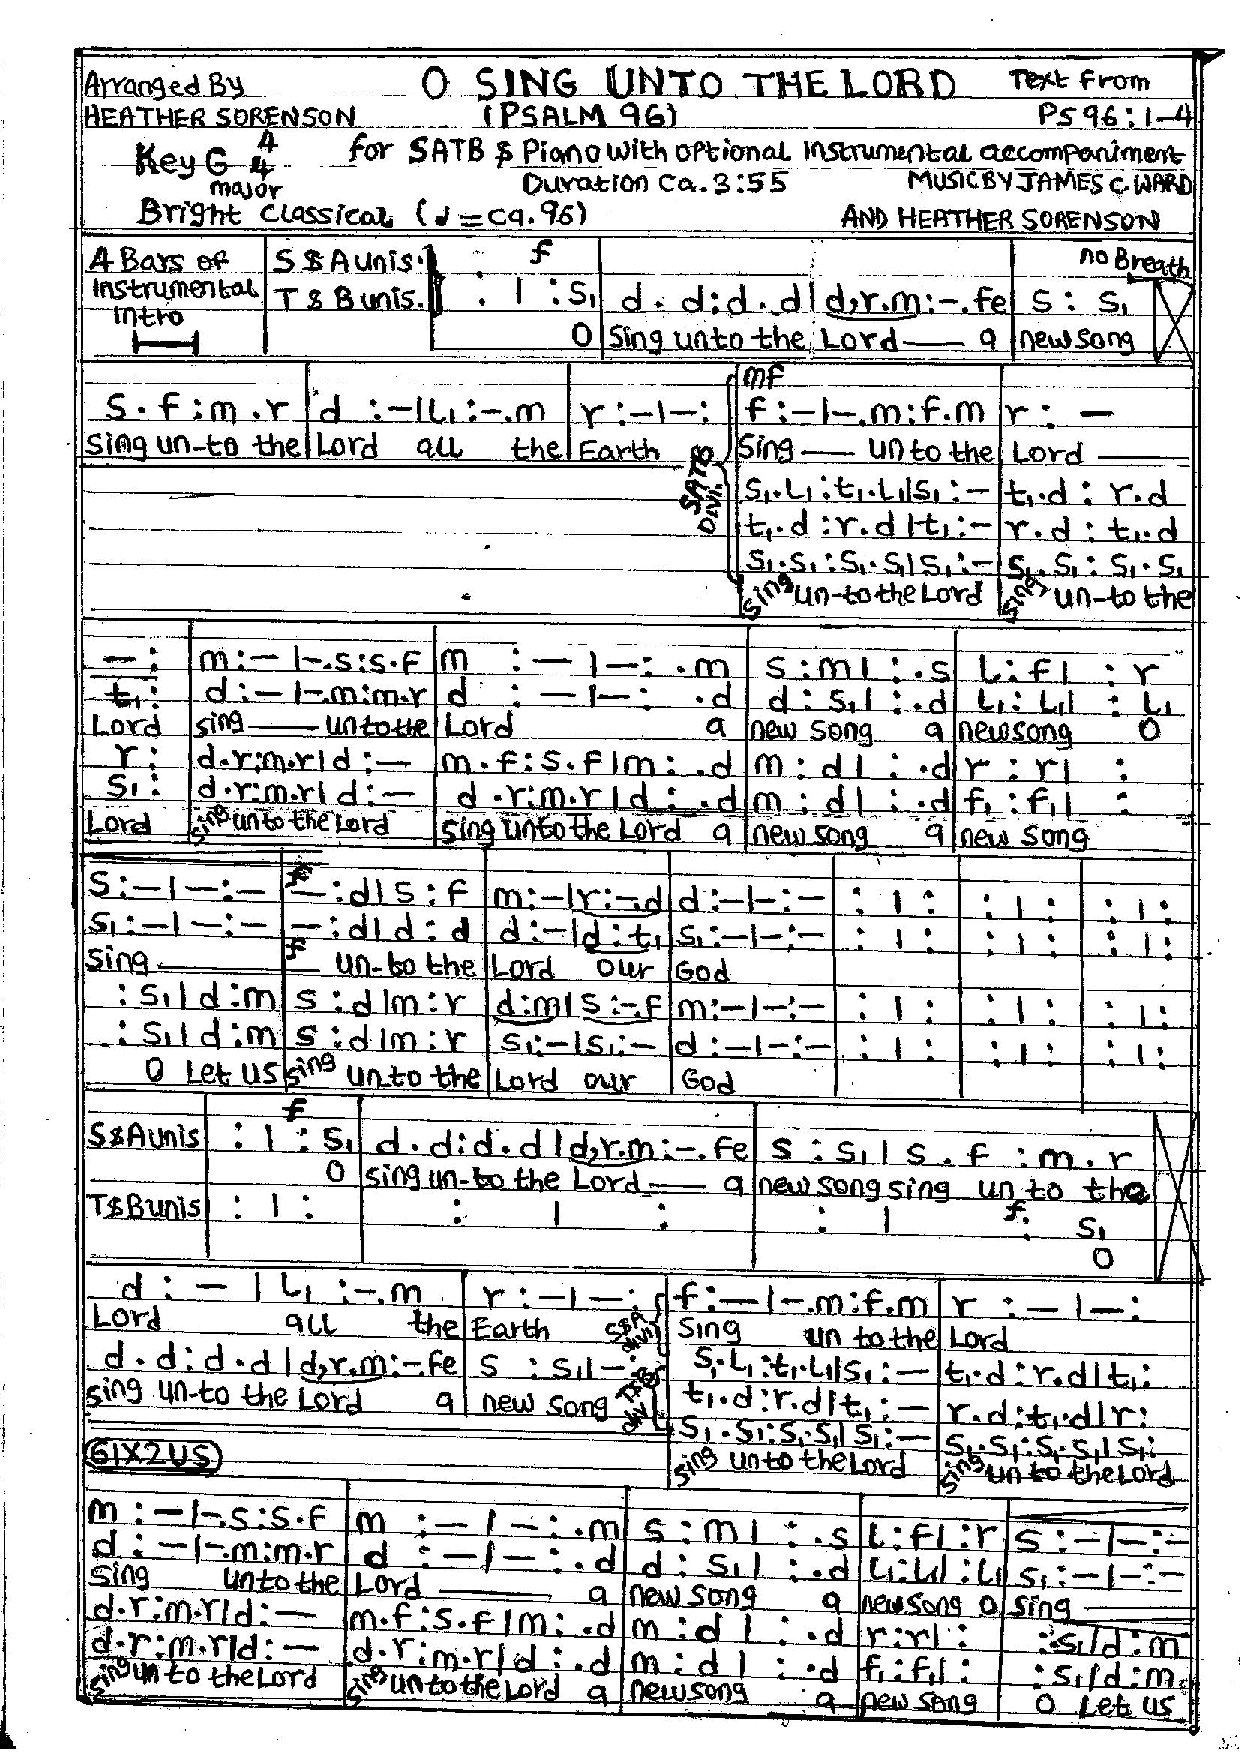 Arranged By O SING UNTO THE LORD Text From
HEATHER SORENSON (PSALM 96) PS 96:1-4
Key G major 4/4 for SATB & Piano with optional Instrumental accompaniment
Duration ca. 3:55 MUSIC BY JAMES C. WARD
Bright Classical (♩=ca.96) AND HEATHER SORENSON
4 Bars of Instrumental Intro
S&A unis.
T&B unis.
f
no Breath
. | : s₁ | d . d : d . d | d,r.m : -. fe | s : s₁
O | Sing unto the Lord — a | new song
mf
s . f : m . r | d : - | l₁ : -. m | r : - | - : | f : - | -. m : f . m | r : —
Sing un-to the | Lord all the | Earth | Sing — unto the | Lord —
SATB DIVI.
s₁. l₁ : t₁. l₁ | s₁ : - | t₁. d : r . d
t₁. d : r . d | t₁ : - | r . d : t₁. d
s₁. s₁ : s₁. s₁ | s₁ : - | s₁. s₁ : s₁. s₁
Sing un-to the Lord | Sing un-to the
— : | m : - | -. s : s . f | m : - | - : . m | s : m | : . s | l : f | : r
t₁ : | d : - | -. m : m . r | d : - | - : . d | d : s₁ | : . d | l₁ : l₁ | : l₁
Lord | sing — unto the | Lord a | new song a | new song O
r : | d . r : m . r | d : - | m . f : s . f | m : . d | m : d | : . d | r : r | :
s₁ : | d . r : m . r | d : - | d . r : m . r | d : . d | m : d | : . d | f₁ : f₁ | :
Lord | sing unto the Lord | Sing unto the Lord a | new song a | new song
f
s : - | - : - | - : d | s : f | m : - | r : -. d | d : - | - : - | : | : | : | : | : | :
s₁ : - | - : - | - : d | d : d | d : - | d : t₁ | s₁ : - | - : - | : | : | : | : | : | :
f
Sing — un-to the | Lord our | God
: s₁ | d : m | s : d | m : r | d : m | s : -. f | m : - | - : - | : | : | : | : | : | :
: s₁ | d : m | s : d | m : r | s₁ : - | s₁ : - | d : - | - : - | : | : | : | : | : | :
O Let us | sing un-to the | Lord our | God
f
S&A unis | : | : s₁ | d . d : d . d | d,r.m : -. fe | s : s₁ | s . f : m . r
O | sing un-to the Lord — a | new song sing un to the
T&B unis | : | : | : | : | : | f : s₁
O
d : - | l₁ : -. m | r : - | - : | f : - | -. m : f . m | r : - | - :
Lord all the | Earth | S&A divi | Sing un to the | Lord
d . d : d . d | d,r.m : - fe | s : s₁ | - : | s₁. l₁ : t₁. l₁ | s₁ : - | t₁. d : r . d | t₁ :
sing un-to the Lord a | new song | div T&B | t₁. d : r . d | t₁ : - | r . d : t₁. d | r :
s₁. s₁ : s₁. s₁ | s₁ : - | s₁. s₁ : s₁. s₁ | s₁ :
G1X2US
sing unto the Lord | Sing un to the Lord
m : - | -. s : s . f | m : - | - : . m | s : m | : . s | l : f | : r | s : - | - : -
d : - | -. m : m . r | d : - | - : . d | d : s₁ | : . d | l₁ : l₁ | : l₁ | s₁ : - | - : -
Sing unto the | Lord — a | new song a | new song O | Sing —
d . r : m . r | d : - | m . f : s . f | m : . d | m : d | : . d | r : r | : | : s₁ | d : m
d . r : m . r | d : - | d . r : m . r | d : . d | m : d | : . d | f₁ : f₁ | : | : s₁ | d : m
Sing un to the Lord | Sing un to the Lord a | new song a | new song | O Let us